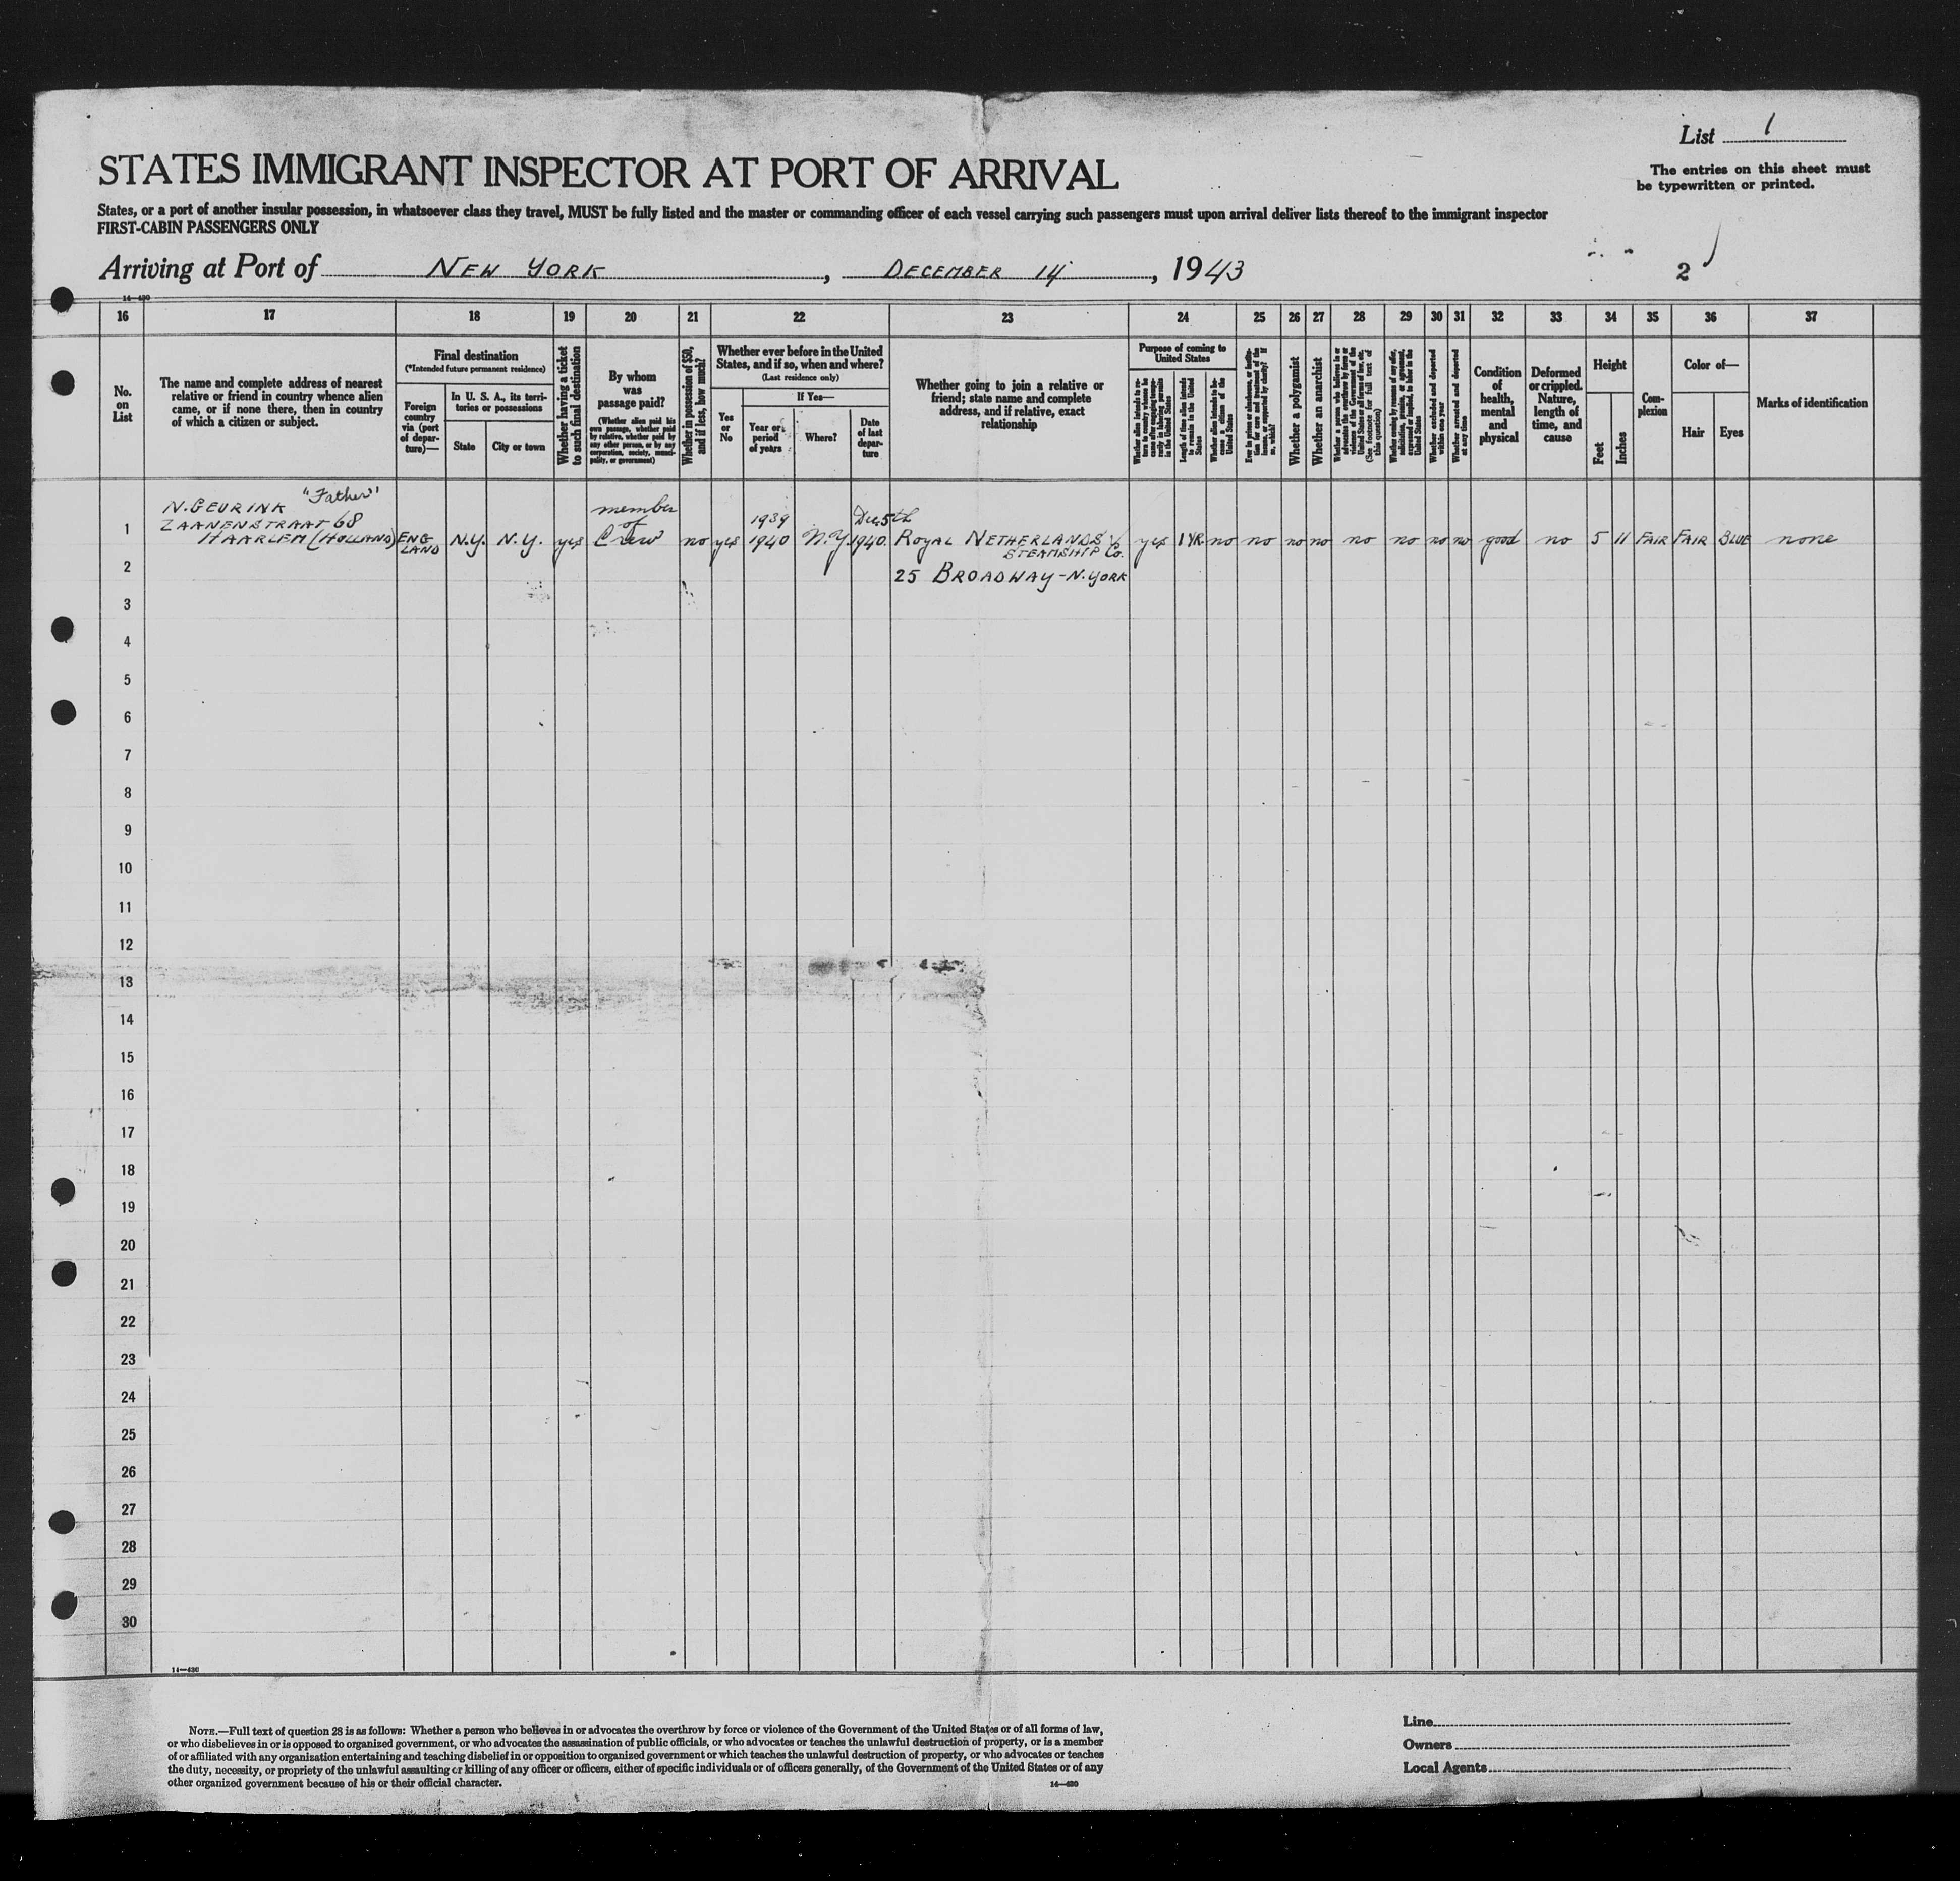 List 1
The entries on this sheet must
be typewritten or printed.
STATES IMMIGRANT INSPECTOR AT PORT OF ARRIVAL
States, or a port of another insular possession, in whatsoever class they travel, MUST be fully listed and the master or commanding officer of each vessel carrying such passengers must upon arrival deliver lists thereof to the immigrant inspector
FIRST-CABIN PASSENGERS ONLY
Arriving at Port of NEW YORK, DECEMBER 14, 1943
2
14—430
16 17 18 19 20 21 22 23 24 25 26 27 28 29 30 31 32 33 34 35 36 37
No.
on
List
The name and complete address of nearest
relative or friend in country whence alien
came, or if none there, then in country
of which a citizen or subject.
Final destination
(*Intended future permanent residence)
Foreign
country
via (port
of depar-
ture)—
In U. S. A., its terri-
tories or possessions
State
City or town
Whether having a ticket
to such final destination
By whom
was
passage paid?
(Whether alien paid his
own passage, whether paid
by relative, whether paid by
any other person, or by any
corporation, society, munici-
pality, or government)
Whether in possession of $50,
and if less, how much?
Whether ever before in the United
States, and if so, when and where?
(Last residence only)
Yes
or
No
If Yes—
Year or
period
of years
Where?
Date
of last
depar-
ture
Whether going to join a relative or
friend; state name and complete
address, and if relative, exact
relationship
Purpose of coming to
United States
Length of time alien intends
to remain in the United
States
Whether alien intends to be-
come a citizen of the
United States
Whether a polygamist
Whether an anarchist
(See footnote for full text of
this question)
Whether excluded and deported
within one year
Whether arrested and deported
at any time
Condition
of
health,
mental
and
physical
Deformed
or crippled.
Nature,
length of
time, and
cause
Height
Feet
Inches
Com-
plexion
Color of—
Hair
Eyes
Marks of identification
N. GEURINK "Father"
ZAANENSTRAAT 68
HAARLEM (HOLLAND)
1
ENG
LAND
N.Y.
N.Y.
yes
member
of
Crew
no
yes
1939
1940
N.Y.
Dec. 5th
1940
ROYAL NETHERLANDS
STEAMSHIP Co.
25 BROADWAY - N. YORK
yes
1 YR.
no
no
no
no
no
no
no
no
good
no
5
11
FAIR
FAIR
BLUE
none
2
3
4
5
6
7
8
9
10
11
12
13
14
15
16
17
18
19
20
21
22
23
24
25
26
27
28
29
30
14—430
NOTE.—Full text of question 28 is as follows: Whether a person who believes in or advocates the overthrow by force or violence of the Government of the United States or of all forms of law,
or who disbelieves in or is opposed to organized government, or who advocates the assassination of public officials, or who advocates or teaches the unlawful destruction of property, or is a member
of or affiliated with any organization entertaining and teaching disbelief in or opposition to organized government or which teaches the unlawful destruction of property, or who advocates or teaches
the duty, necessity, or propriety of the unlawful assaulting or killing of any officer or officers, either of specific individuals or of officers generally, of the Government of the United States or of any
other organized government because of his or their official character.
14—430
Line
Owners
Local Agents